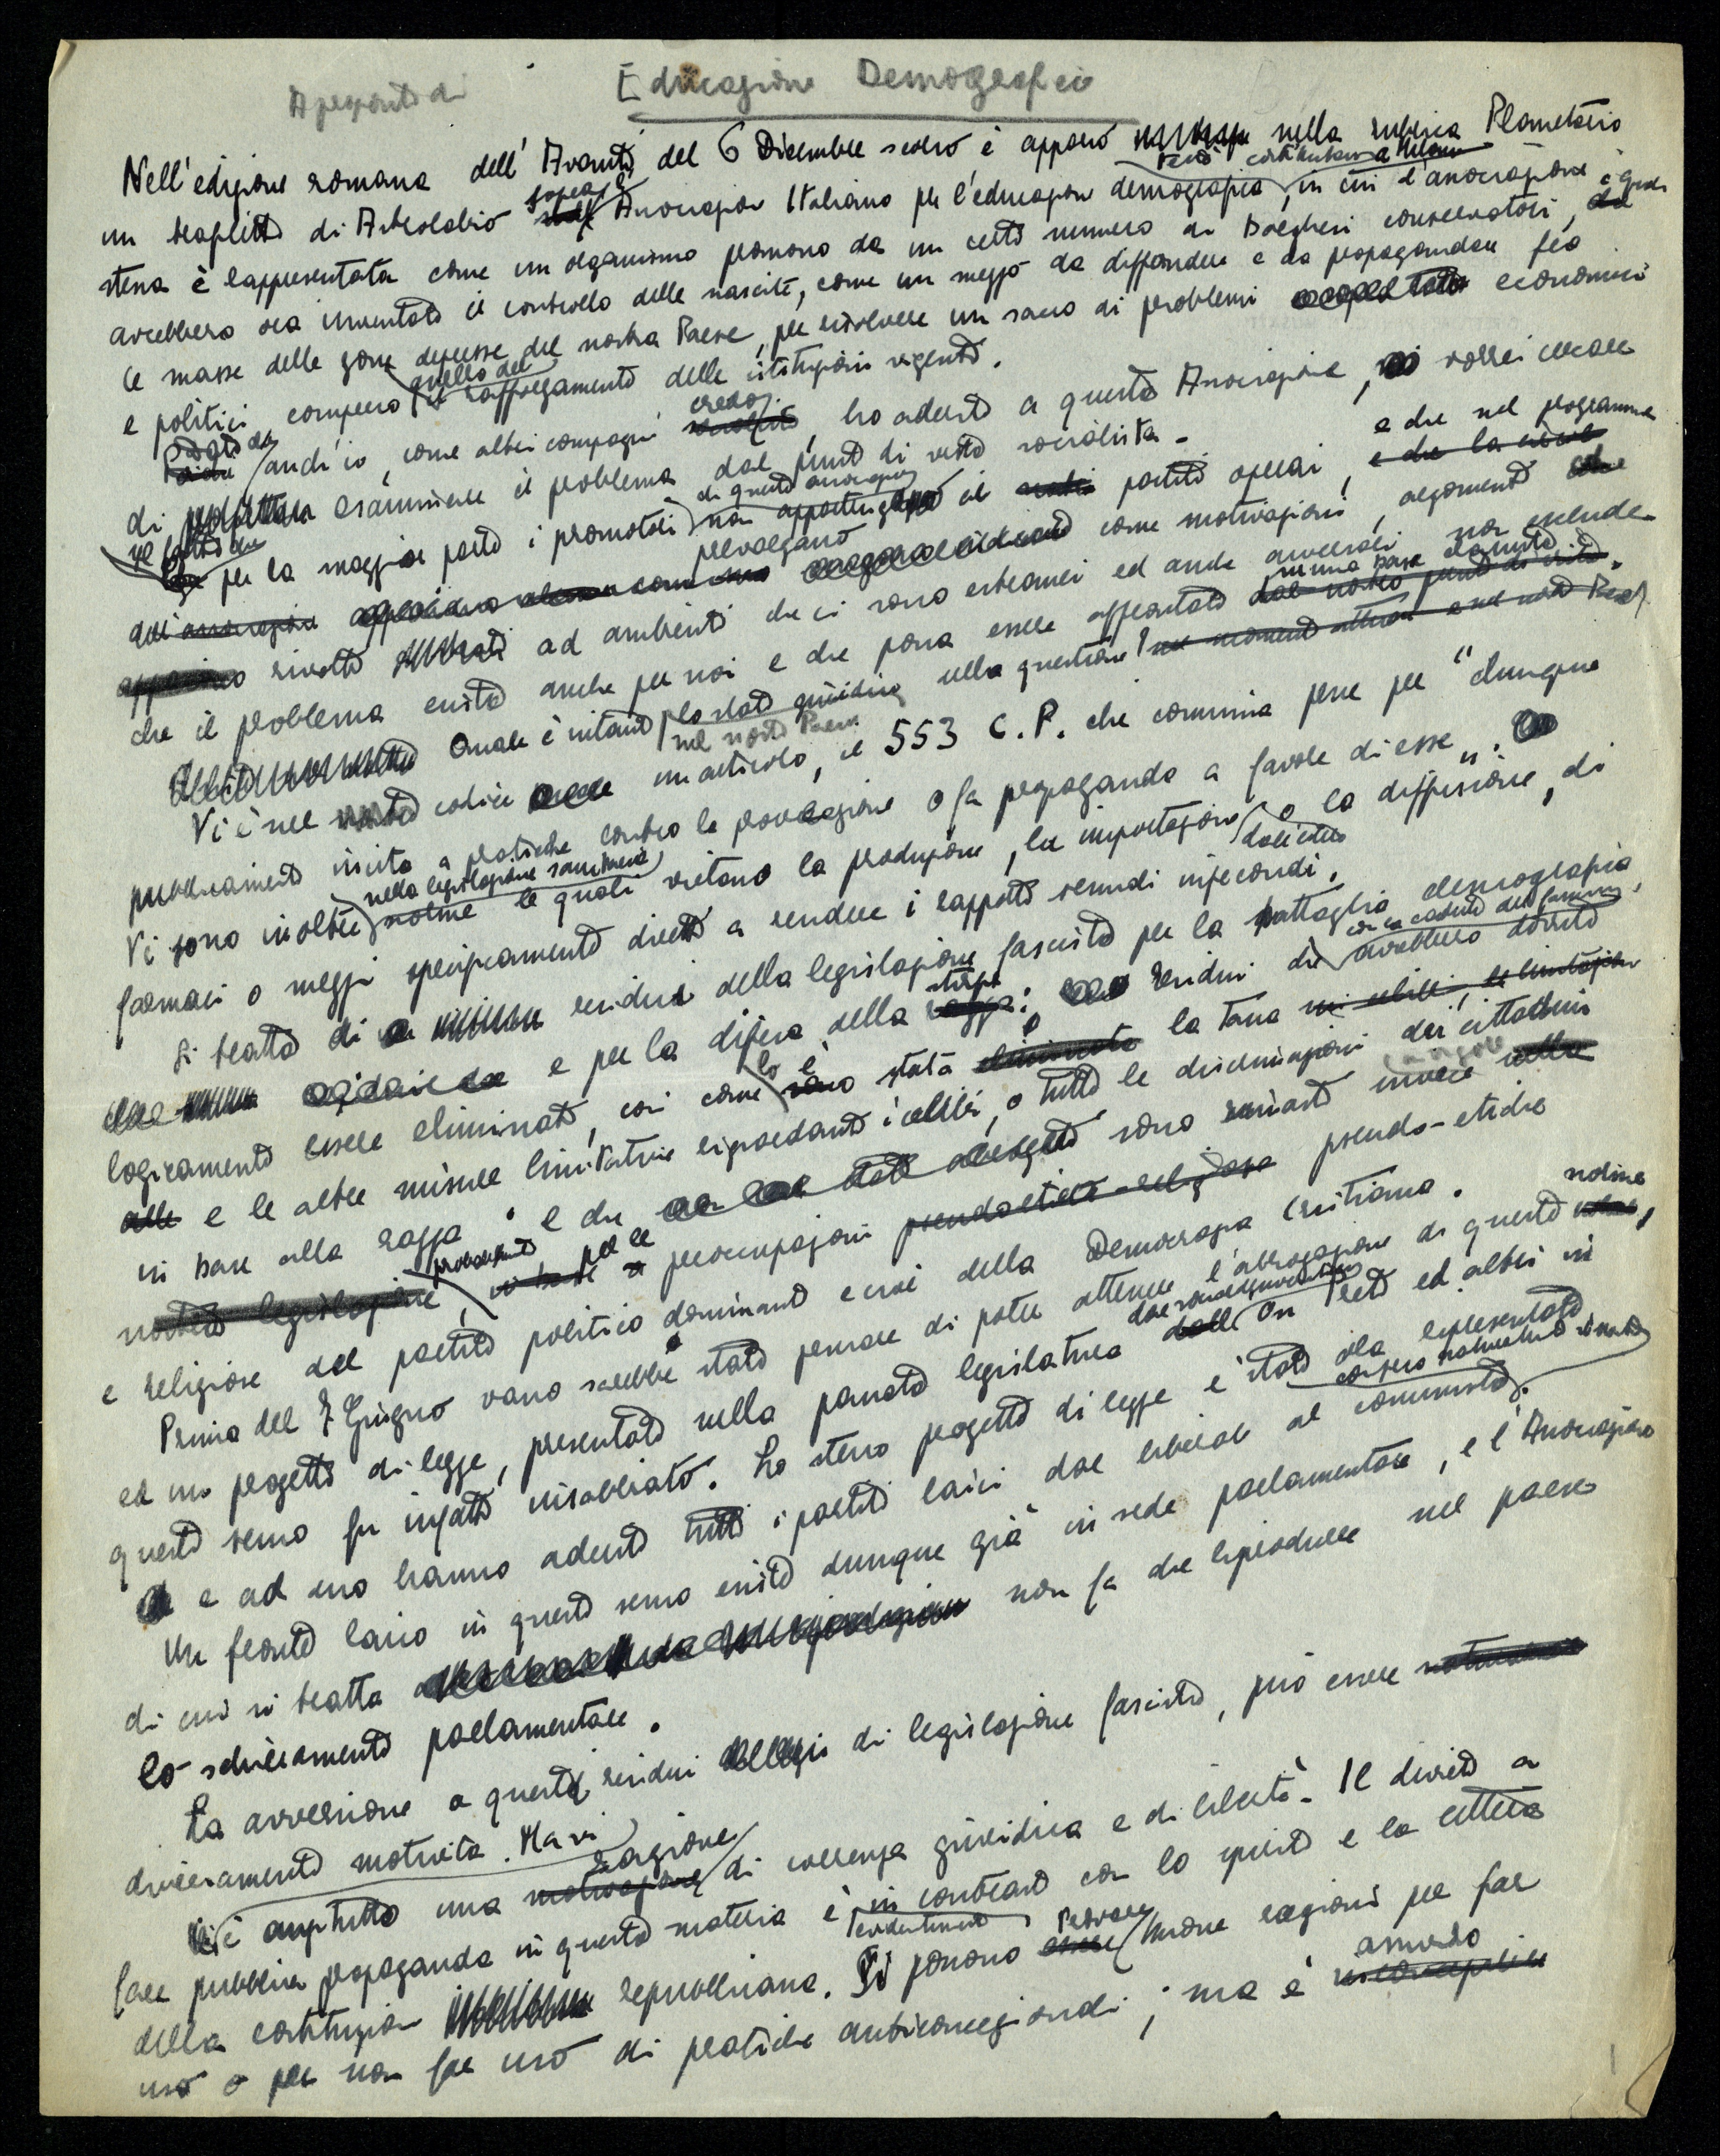 A proposito di Educazione Demografica
Nell'edizione romana dell'Avanti del 6 Dicembre scorso è apparso nella rubrica Planetario
un trafiletto di Astrolabio sopra l' Associazione Italiana per l'educazione demografica, testé costituitasi a Milano in cui l'associazione
stessa è rappresentata come un organismo promosso da un certo numero di borghesi conservatori, i quali
avrebbero ora inventato il controllo delle nascite, come un mezzo da diffondere e da propagandare fra
le masse delle zone depresse del nostro Paese, per risolvere un sacco di problemi economici
e politici compreso quello del rafforzamento delle istituzioni vigenti.
Dato che anch'io, come altri compagni credo, ho aderito a questa Associazione, vorrei cercare
di esaminare il problema dal punto di vista socialista.
Il fatto che per la maggior parte i promotori di questa associazione non appartengano ai partiti operai, e che nel programma
dell' prevalgano come motivazioni, argomenti
rivolti ad ambienti che ci sono estranei ed anche avversari non esclude
che il problema esista anche per noi e che possa essere affrontato su una base classista.
Quale è intanto lo stato giuridico della questione nel nostro Paese?
Vi è nel codice un articolo, il 553 C.P. che commina pene per "chiunque
pubblicamente incita a pratiche contro la procreazione o fa propaganda a favore di esse".
Vi sono inoltre nella legislazione sanitaria norme le quali vietano la produzione, la importazione dall'estero o la diffusione, di
farmaci o mezzi specificamente diretti a rendere i rapporti sessuali infecondi.
Si tratta di residui della legislazione fascista per la battaglia demografica
e per la difesa della stirpe: residui che con la caduta del fascismo, avrebbero dovuto
logicamente essere eliminati, così come lo è stata la tassa
e le altre misure limitatrici riguardanti i celibi, o tutte le discriminazioni dei cittadini
in base alla razza; e che sono rimasti invece in vigore
probabilmente per le preoccupazioni pseudo-etiche
e religiose del partito politico dominante e cioè della Democrazia Cristiana.
Prima del 7 Giugno vano sarebbe stato pensare di poter ottenere l'abrogazione di queste norme,
ed un progetto di legge, presentato nella passata legislatura dai socialdemocratici On Preti ed altri in
questo senso fu infatti insabbiato. Lo stesso progetto di legge è stato ora ripresentato
e ad esso hanno aderito tutti i partiti laici dai liberali ai comunisti, compreso naturalmente il nostro.
Un fronte laico in questo senso esiste dunque già in sede parlamentare, e l'Associazione
di cui si tratta non fa che riprodurre nel paese
lo schieramento parlamentare.
La avversione a questi residui di legislazione fascista, può essere
diversamente motivata. Ma vi
è anzitutto una ragione di coerenza giuridica e di libertà. Il divieto a
fare pubblica propaganda in questa materia è evidentemente in contrasto con lo spirito e la lettera
della costituzione repubblicana. Si possono trovare buone ragioni per far
uso o per non far uso di pratiche anticoncezionali; ma è assurdo